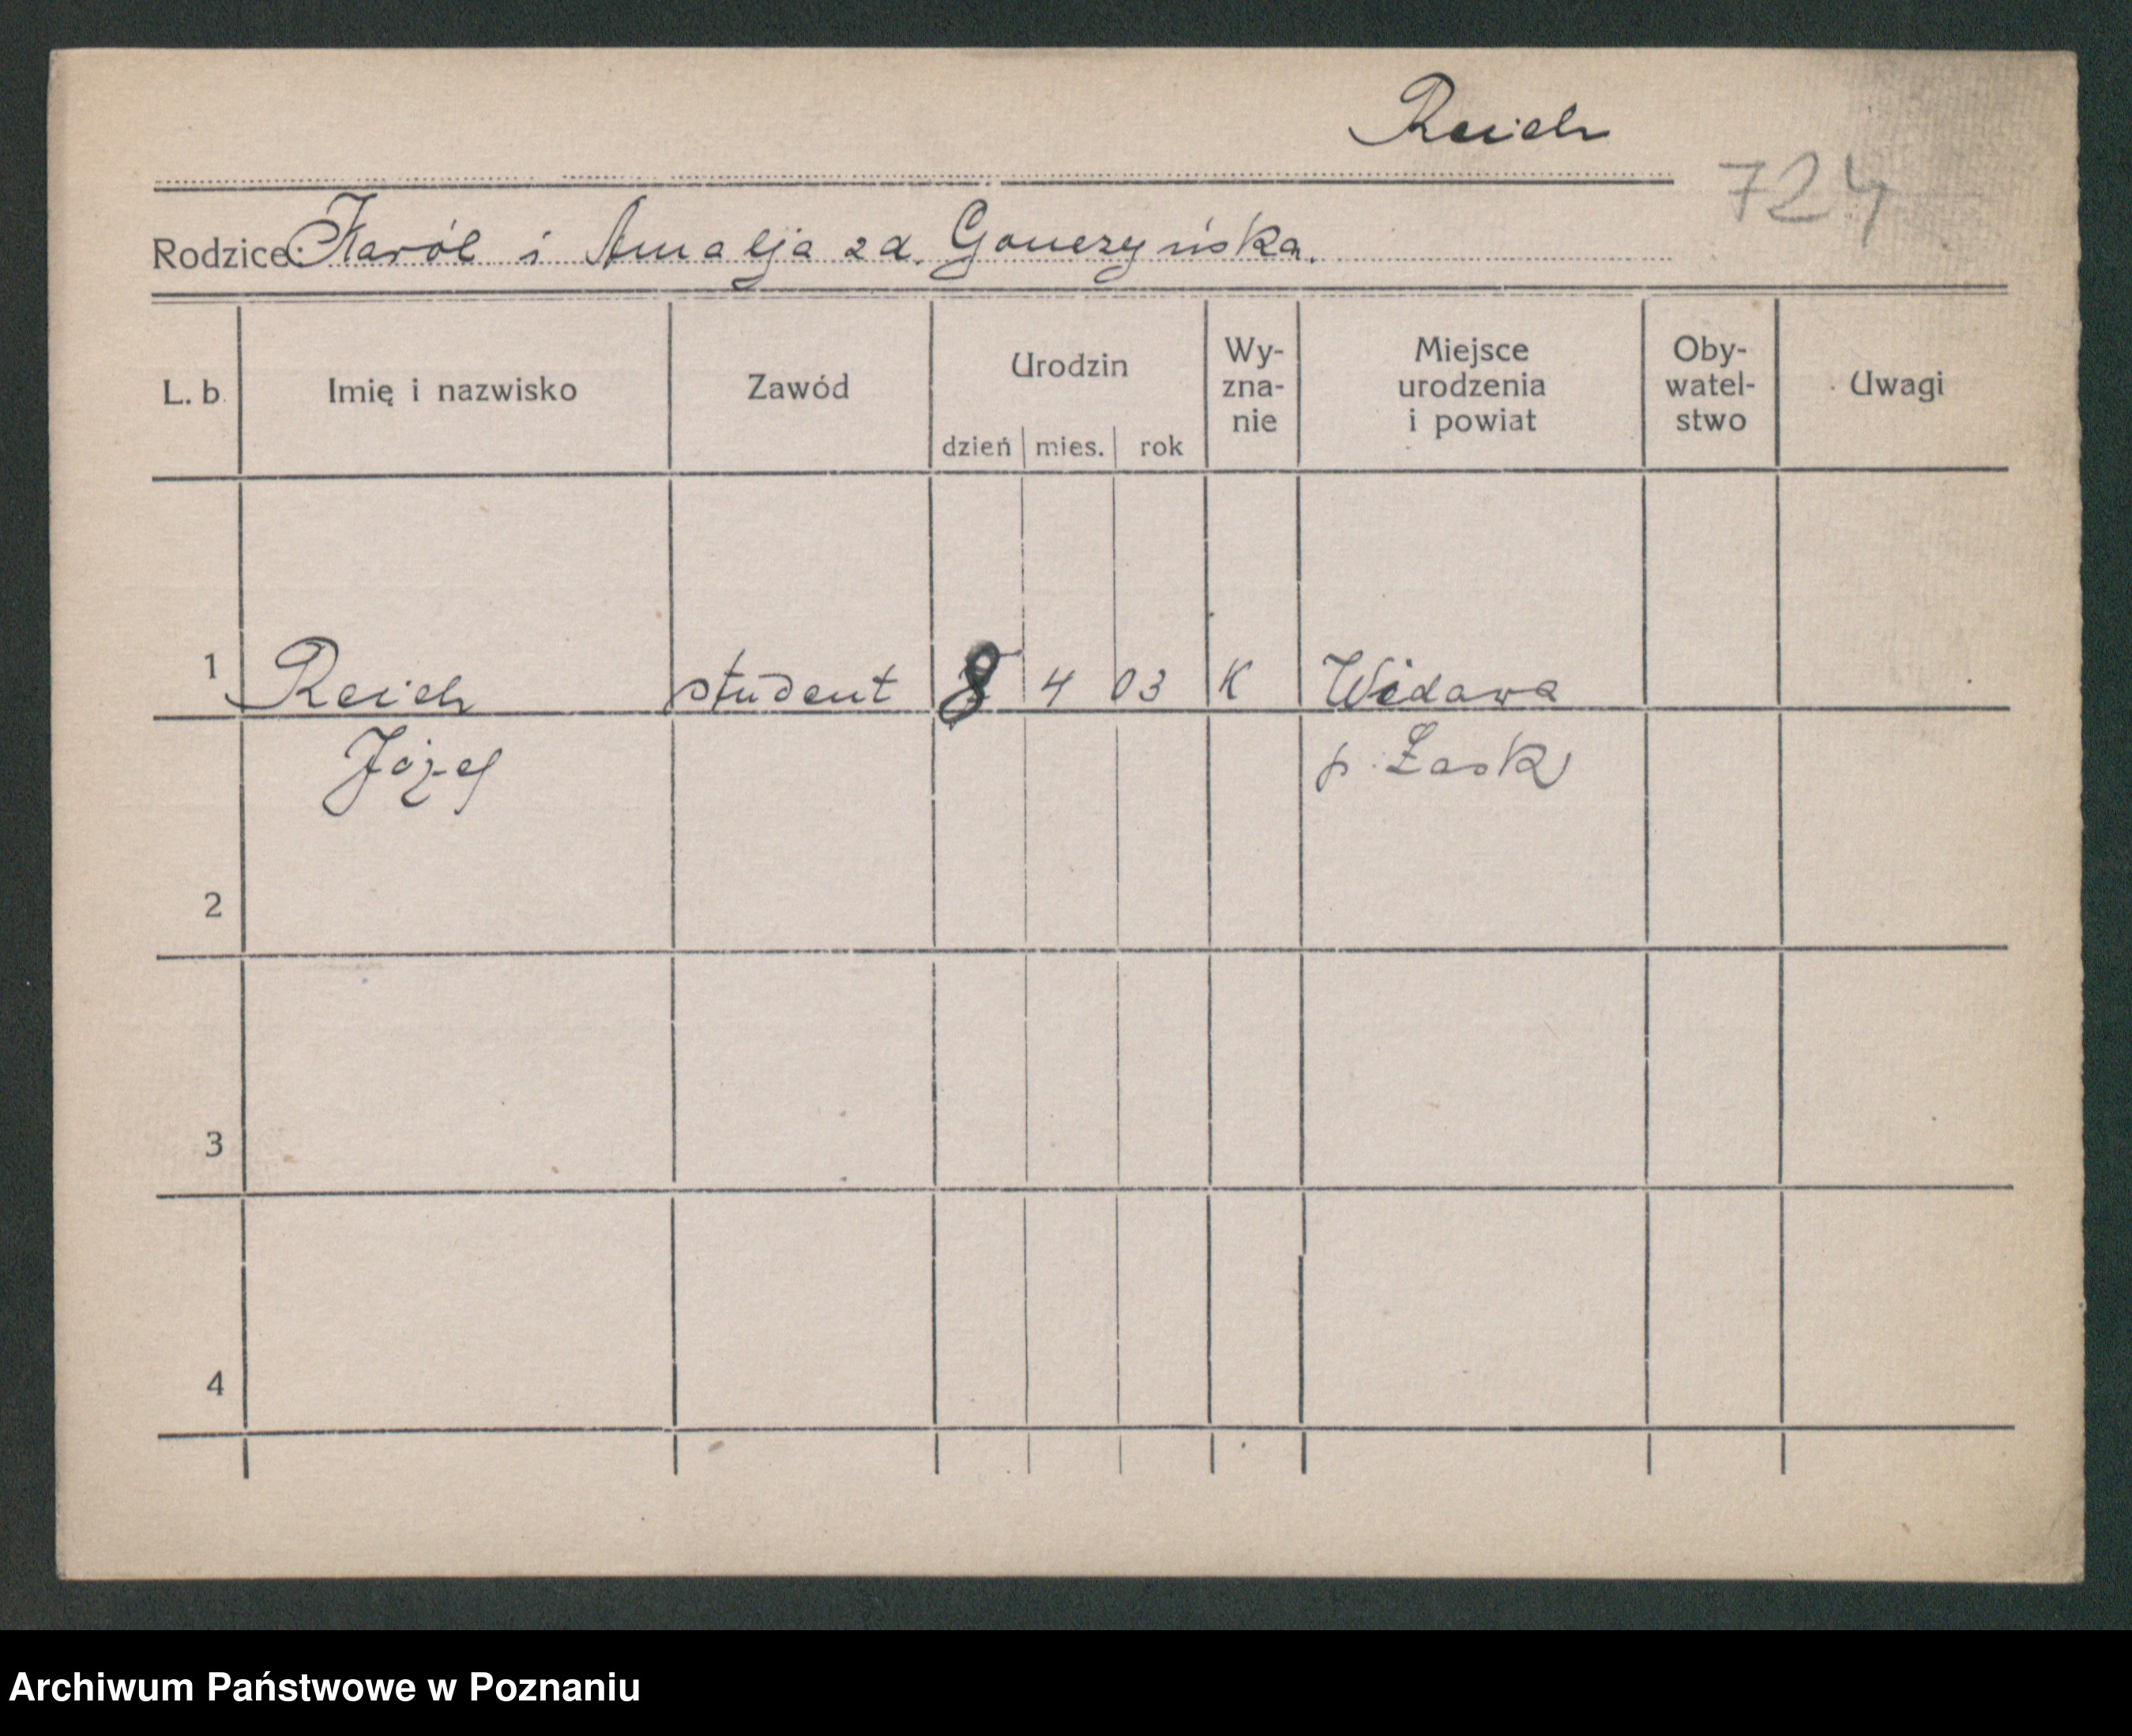 Reich
724
Rodzice: Karól i Amalja zd. Gonczyńska.
L. b. Imię i nazwisko Zawód Urodzin dzień mies. rok Wy-zna-nie Miejsce urodzenia i powiat Oby-watel-stwo Uwagi
1 Reich student 8 4 03 K Widawa
Józef p. Łask
2
3
4
Archiwum Państwowe w Poznaniu